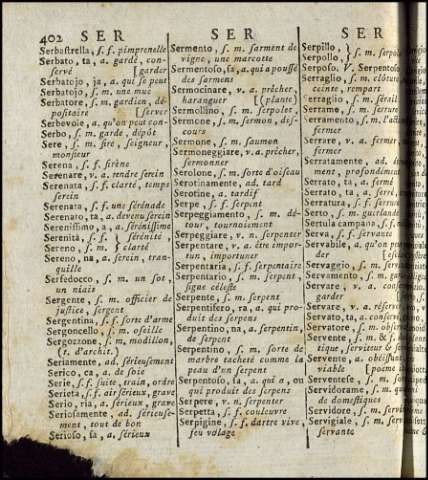 402 SER SER SER
Serbastrella, s. f. pimprenelle
Serbato, ta, a. gardé, con-
servé [garder
Serbatojo, ja, a. qui se peut
Serbatojo, s. m. une mue
Serbatore, s. m. gardien, dé-
positaire [server
Serbevole, a. qu'on peut con-
Serbo, s. m. garde, dépôt
Sere, s. m. sire, seigneur,
monsieur
Serena, s. f. sirène
Serenare, v. a. rendre serein
Serenata, s. f. clarté, temps
serein
Serenata, s. f. une sérénade
Serenato, ta, a. devenu serein
Serenissimo, a, a. sérénissime
Serenità, s. f. } sérénité
Sereno, s. m. } clarté
Sereno, na, a. serein, tran-
quille
Serfedocco, s. m. un sot,
un niais
Sergente, s. m. officier de
justice, sergent
Sergentina, s. f. sorte d'arme
Sergoncello, s. m. oseille
Sergozzone, s. m. modillon,
(t. d'archit.)
Seriamente, ad. sérieusement
Serico, ca, a. de soie
Serie, s. f. suite, train, ordre
Serietà, s. f. air sérieux, grave
Serio, ria, a. sérieux, grave
Seriosamente, ad. sérieuse-
ment, tout de bon
Serioso, sa, a. sérieux
Sermento, s. m. sarment de
vigne, une marcotte
Sermentoso, sa, a. qui a poussé
des sarmens
Sermocinare, v. a. prêcher,
haranguer [(plante)
Sermollino, s. m. serpolet,
Sermone, s. m. sermon, dis-
cours
Sermone, s. m. saumon
Sermoneggiare, v. a. prêcher,
sermonner
Serolone, s. m. sorte d'oiseau
Serotinamente, ad. tard
Serotine, a. tardif
Serpe, s. f. serpent
Serpeggiamento, s. m. dé-
tour, tournoiement
Serpeggiare, v. n. serpenter
Serpentare, v. a. être impor-
tun, importuner
Serpentaria, s. f. serpentaire
Serpentario, s. m. serpent,
signe céleste
Serpente, s. m. serpent
Serpentifero, ra, a. qui pro-
duit des serpens
Serpentino, na, a. serpentin,
de serpent
Serpentino, s. m. sorte de
marbre tacheté comme la
peau d'un serpent
Serpentoso, sa, a. qui a, ou
qui produit des serpens
Serpere, v. n. serpenter
Serpetta, s. f. couleuvre
Serpigine, s. f. dartre vive,
feu volage
Serpillo, }
Serpollo, } s. m. serpole
Serposo. V. Serpentoso
Serraglio, s. m. clôture
ceinte, rempart
Serraglio, s. m. sérail
Serrame, s. m. serrure
Serramento, s. m. l'act
fermer
Serrare, v. a. fermer
fermer
Serratamente, ad.
ment, profondément
Serrato, ta, a. fermé
Serrato, ta, a. serré,
Serratura, s. f. serrure
Serto, s. m. guirlande
Sertula campano, s. f.
Serva, s. f. servante
Servabile, a. qu'on peut
der
Servaggio, s. m. servage
Servamento, s. m. garde
Servare, v. a. conserver
garder
Servare, v. a. réserver
Servato, ta, a. conservé
Servatore, s. m. observ
Servente, s. m. & f.
tique, serviteur & servante
Servente, a. obéissant
viable [poeme
Serventese, s. m. sorte
Servidorame, s. m. qu
de domestiques
Servidore, s. m. serv
Servigiale, s. m. serv
servante